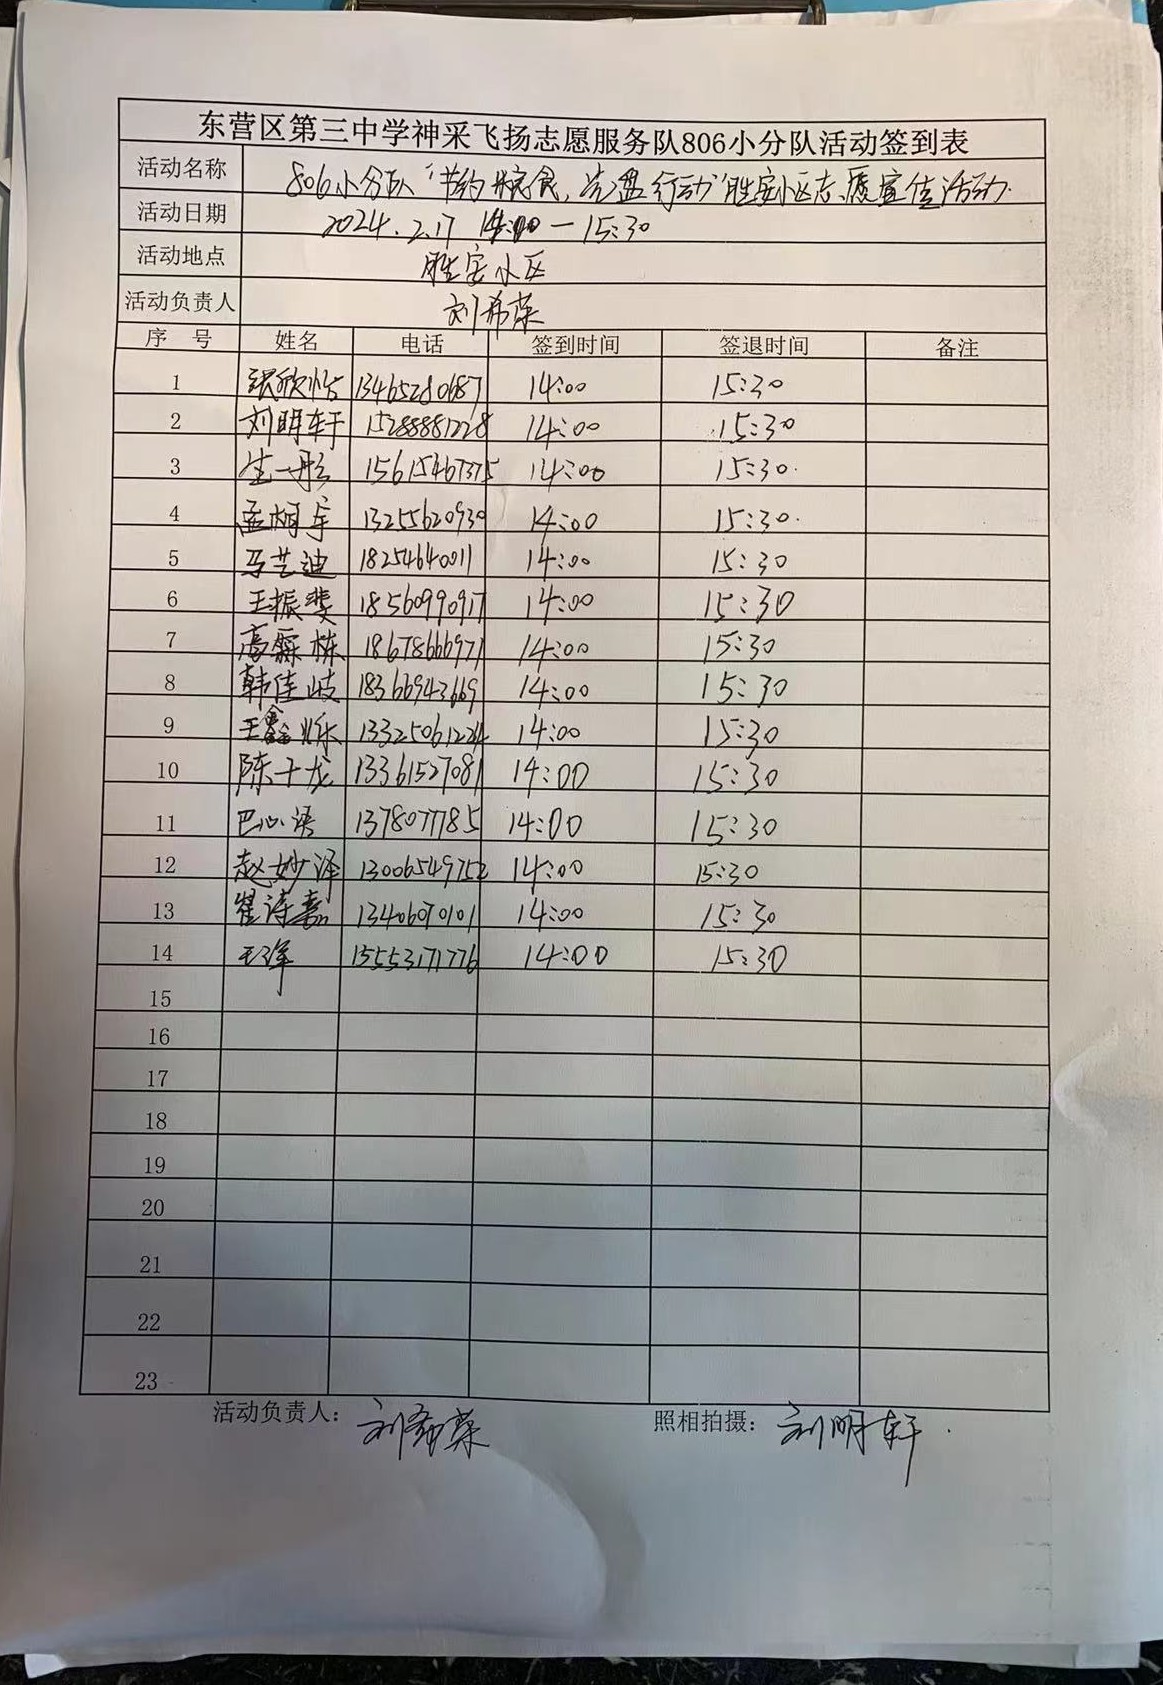 东营区第三中学神采飞扬志愿服务队806小分队活动签到表
活动名称 806小分队“节约粮食，光盘行动”胜安小区志愿宣传活动.
活动日期 2024.2.17 14:00—15:30
活动地点 胜安小区
活动负责人 刘希荣
序 号 姓名 电话 签到时间 签退时间 备注
1 张欣怡 13465280687 14:00 15:30
2 刘明轩 15288881228 14:00 15:30
3 生一彤 15615467375 14:00 15:30
4 孟桐宇 13255620930 14:00 15:30
5 马艺迪 18254640011 14:00 15:30
6 王振斐 18560990917 14:00 15:30
7 高霖栋 18678666971 14:00 15:30
8 韩佳岐 18366943669 14:00 15:30
9 王鑫烁 13325061224 14:00 15:30
10 陈十龙 13361527081 14:00 15:30
11 巴心语 1378077785 14:00 15:30
12 赵妙泽 13006549752 14:00 15:30
13 崔诗嘉 13406070101 14:00 15:30
14 15553171776 14:00 15:30
15
16
17
18
19
20
21
22
23
活动负责人：刘希荣 照相拍摄：刘明轩